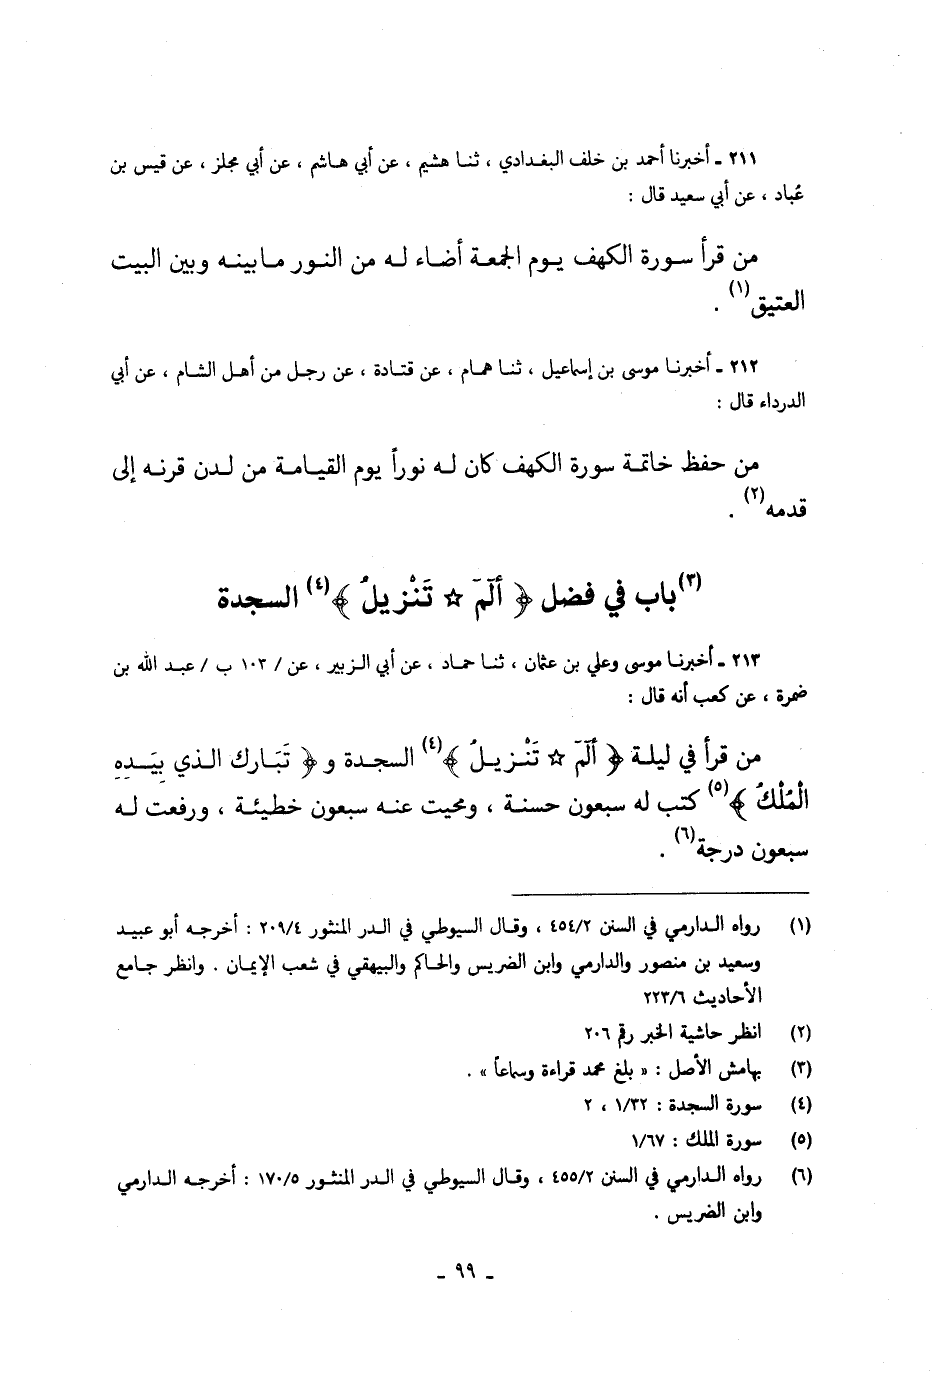 ٢١١ ـ أخبرنا أحمد بن خلف البغدادي ، ثنا هشيم ، عن أبي هاشم ، عن أبي مجلز ، عن قيس بن
عُباد ، عن أبي سعيد قال :
من قرأ سورة الكهف يوم الجمعة أضاء له من النور مابينه وبين البيت
العتيق(١) .
٢١٢ ـ أخبرنا موسى بن إسماعيل ، ثنا همام ، عن قتادة ، عن رجل من أهل الشام ، عن أبي
الدرداء قال :
من حفظ خاتمة سورة الكهف كان له نوراً يوم القيامة من لدن قرنه إلى
قدمه(٢) .
(٣)باب في فضل ﴿ ألٓمٓ ☆ تَنْزيلُ ﴾(٤) السجدة
٢١٣ ـ أخبرنا موسى وعلي بن عثمان ، ثنا حماد ، عن أبي الزبير ، عن / ١٠٣ ب / عبد الله بن
ضمرة ، عن كعب أنه قال :
من قرأ في ليلة ﴿ ألٓمٓ ☆ تَنْزيلُ ﴾(٤) السجدة و ﴿ تَبَارك الذي بيَده
الْمُلْكُ ﴾(٥) كتب له سبعون حسنة ، ومحيت عنه سبعون خطيئة ، ورفعت له
سبعون درجة(٦) .
(١) رواه الدارمي في السنن ٤٥٤/٢ ، وقال السيوطي في الدر المنثور ٢٠٩/٤ : أخرجه أبو عبيد
وسعيد بن منصور والدارمي وابن الضريس والحاكم والبيهقي في شعب الإيمان . وانظر جامع
الأحاديث ٢٢٣/٦
(٢) انظر حاشية الخبر رقم ٢٠٦
(٣) بهامش الأصل : « بلغ محمد قراءة وسماعاً » .
(٤) سورة السجدة : ١/٣٢ ، ٢
(٥) سورة الملك : ١/٦٧
(٦) رواه الدارمي في السنن ٤٥٥/٢ ، وقال السيوطي في الدر المنثور ١٧٠/٥ : أخرجه الدارمي
وابن الضريس .
ـ ٩٩ ـ